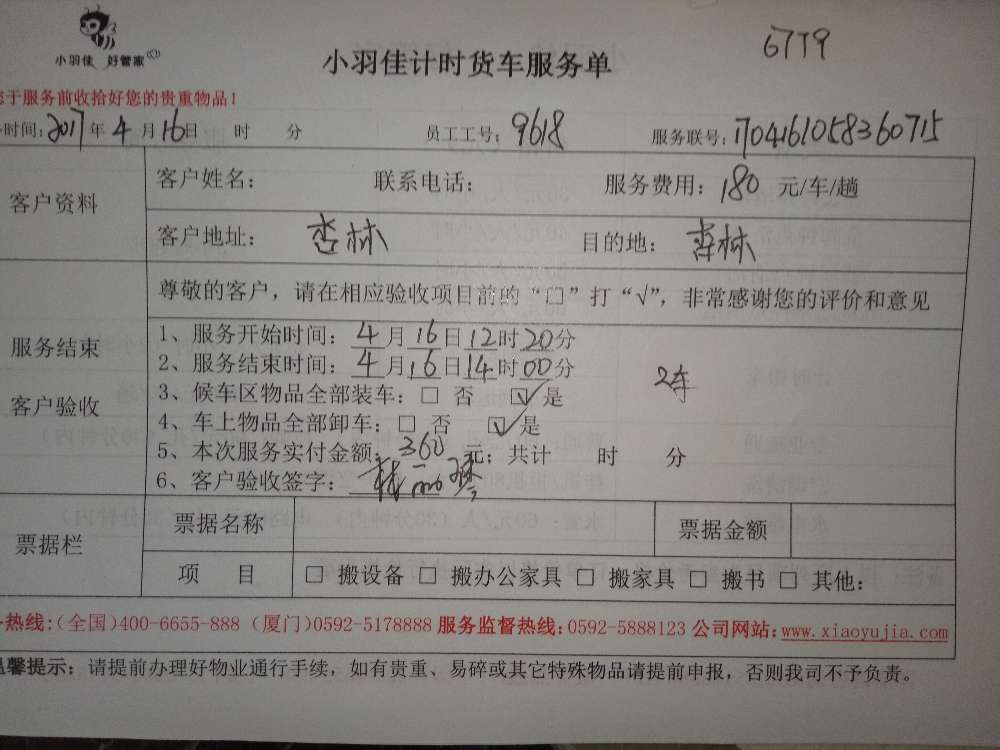 6779
小羽佳 好管家
小羽佳计时货车服务单
您于服务前收拾好您的贵重物品！
时间：2017年4月16日 时 分 员工工号：9618 服务联号：1704161058360715
客户资料
客户姓名： 联系电话： 服务费用：180 元/车/趟
客户地址：杏林 目的地：杏林
服务结束
客户验收
尊敬的客户，请在相应验收项目前的“□”打“√”，非常感谢您的评价和意见
1、服务开始时间：4月16日12时20分
2、服务结束时间：4月16日14时00分
2车
3、候车区物品全部装车：□ 否 ☑是
4、车上物品全部卸车：□ 否 ☑是
5、本次服务实付金额：360 元；共计 时 分
6、客户验收签字：
票据栏
票据名称 票据金额
项 目 □ 搬设备 □ 搬办公家具 □ 搬家具 □ 搬书 □ 其他：
热线：(全国)400-6655-888 (厦门)0592-5178888 服务监督热线：0592-5888123 公司网站：www.xiaoyujia.com
温馨提示：请提前办理好物业通行手续，如有贵重、易碎或其它特殊物品请提前申报，否则我司不予负责。